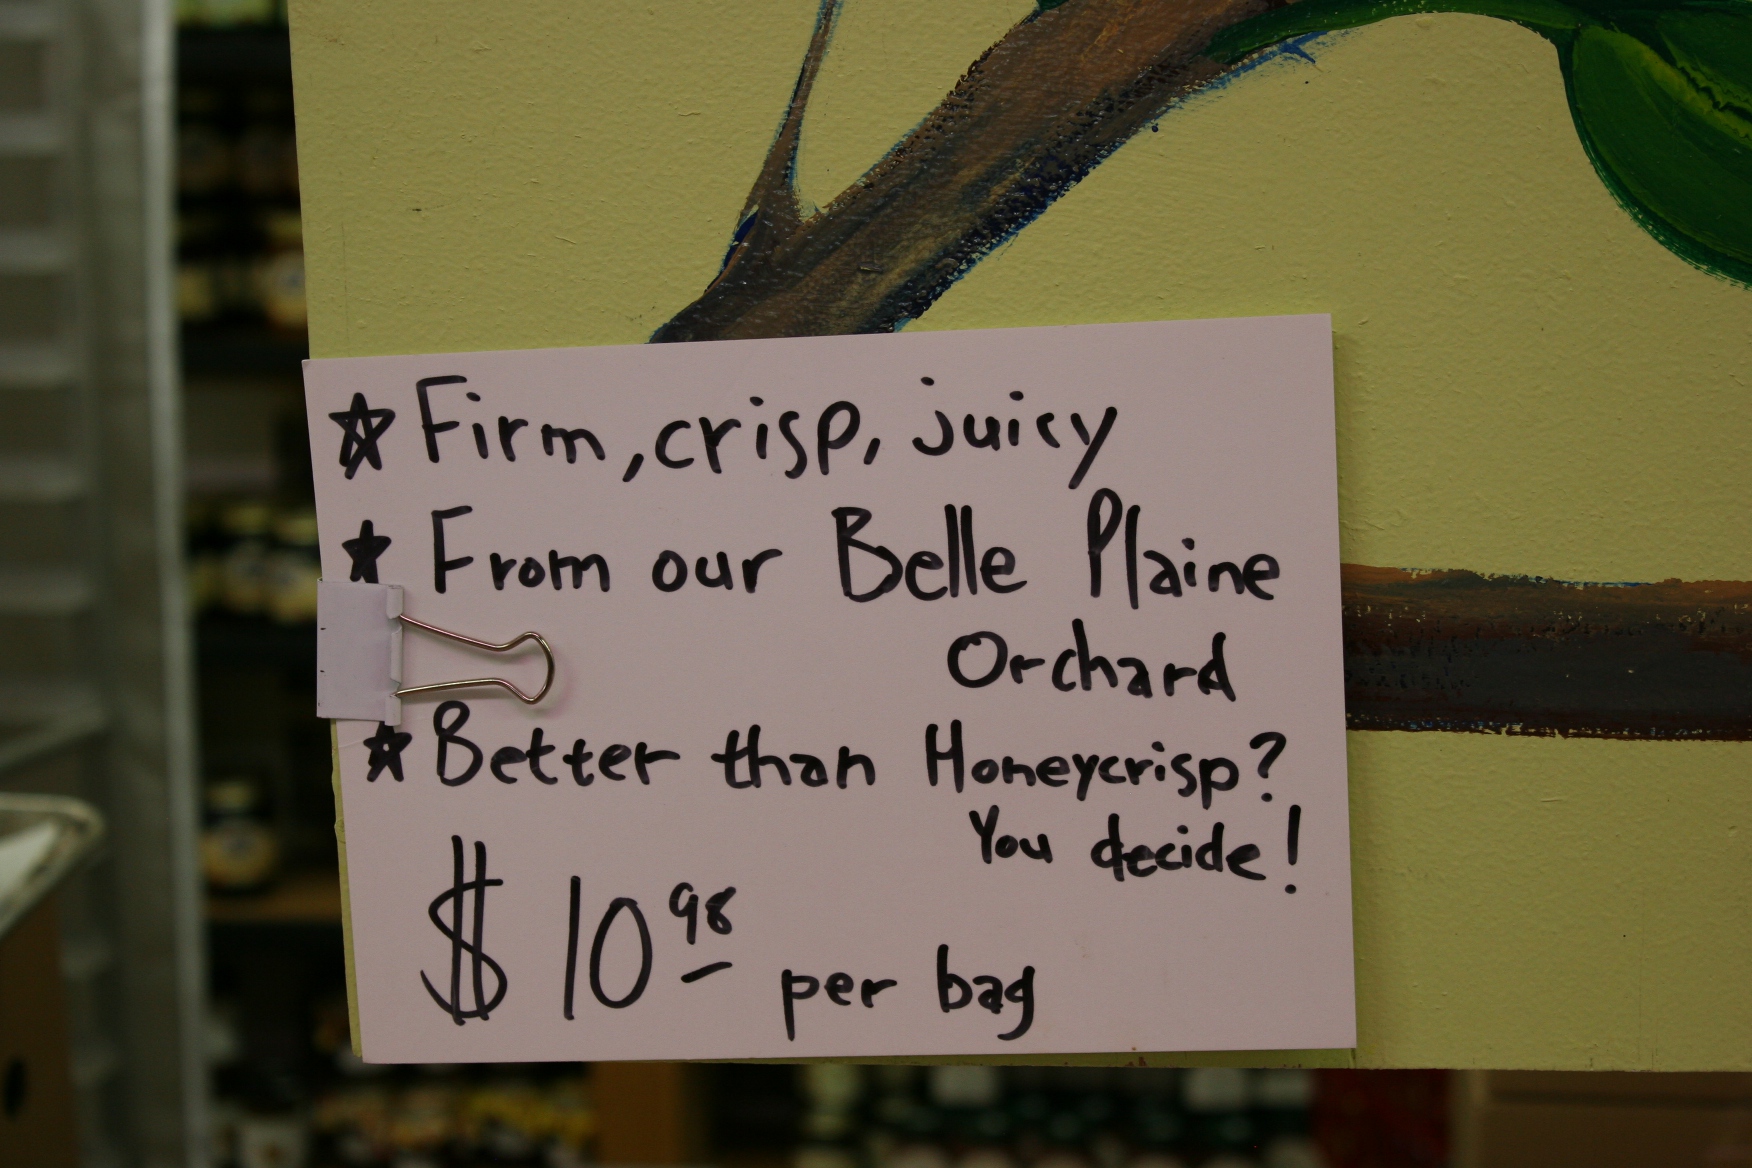 ☆ Firm, crisp, juicy
☆ From our Belle Plaine
Orchard
☆ Better than Honeycrisp?
You decide!
$10 98 per bag